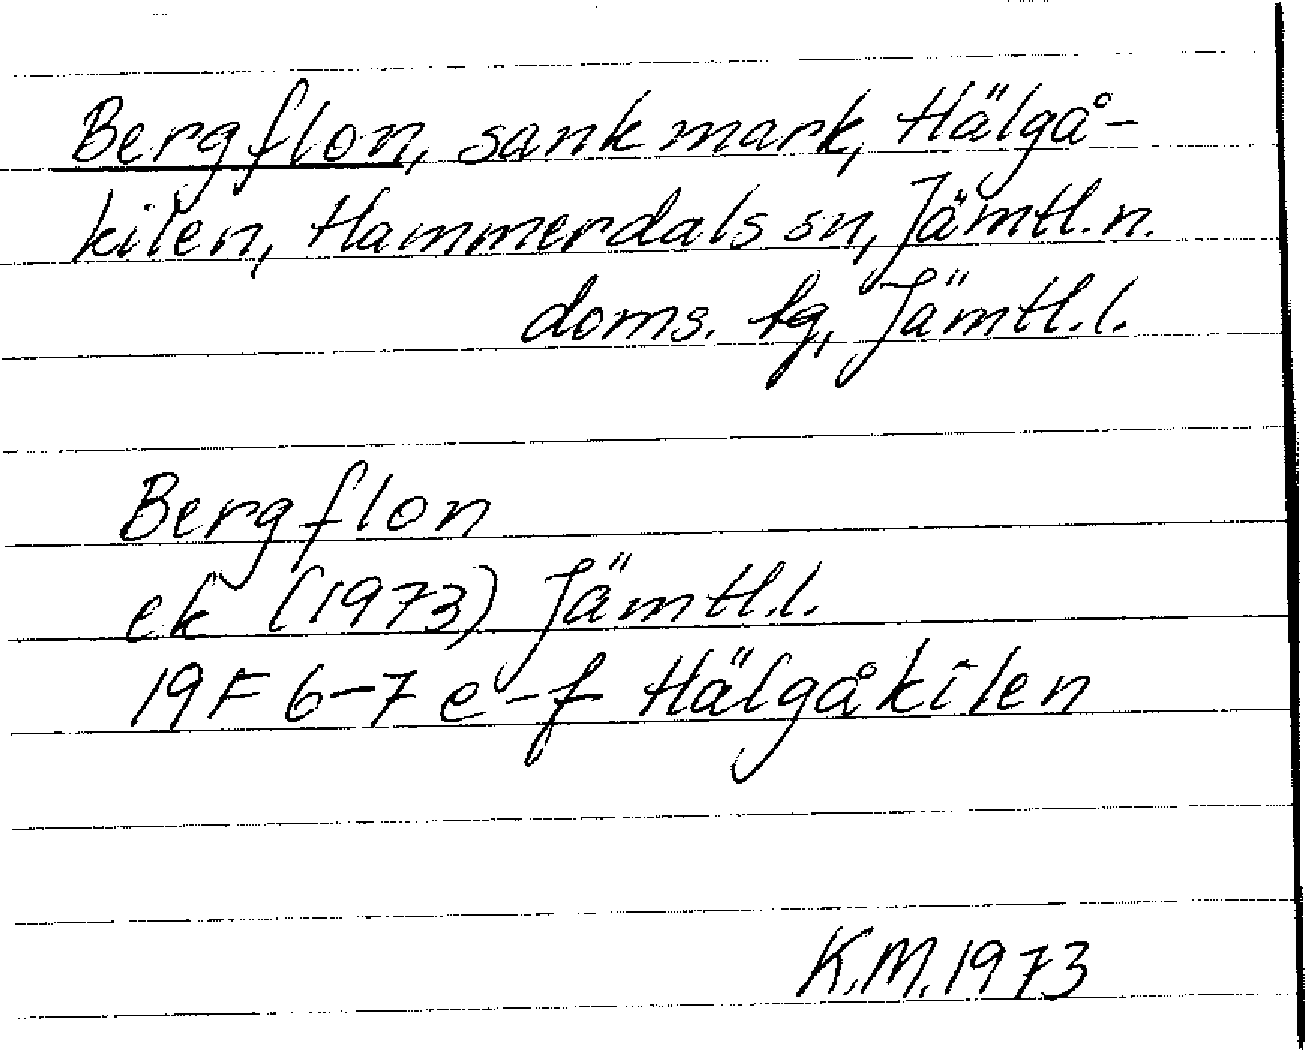 Bergflon, sank mark, Hälgå-
kilen, Hammerdals sn, Jämtl. n.
doms. fg, Jämtl. l.
Bergflon
ek (1973) Jämtl. l.
19F 6-7 e-f Hälgåkilen
K.M. 1973